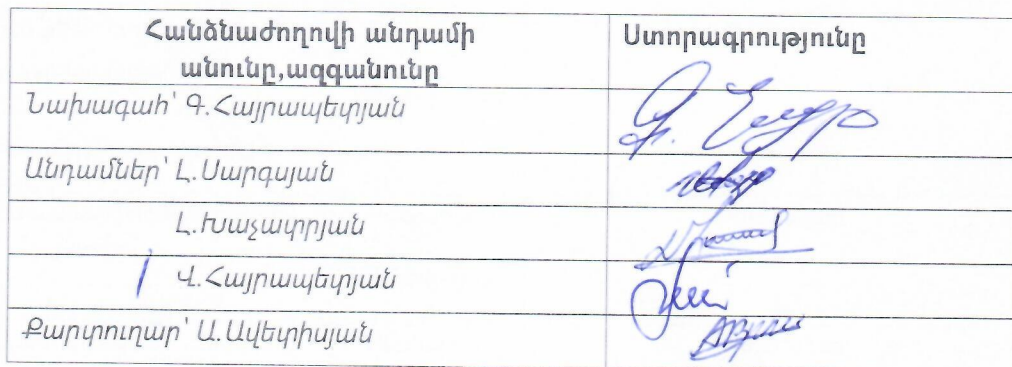 Հանձնաժողովի անդամի
անունը,ազգանունը
Ստորագրությունը
Նախագահ՝ Գ.Հայրապետյան
Անդամներ՝ Լ.Սարգսյան
Լ.Խաչատրյան
Վ.Հայրապետյան
Քարտուղար՝ Ա.Ավետիսյան